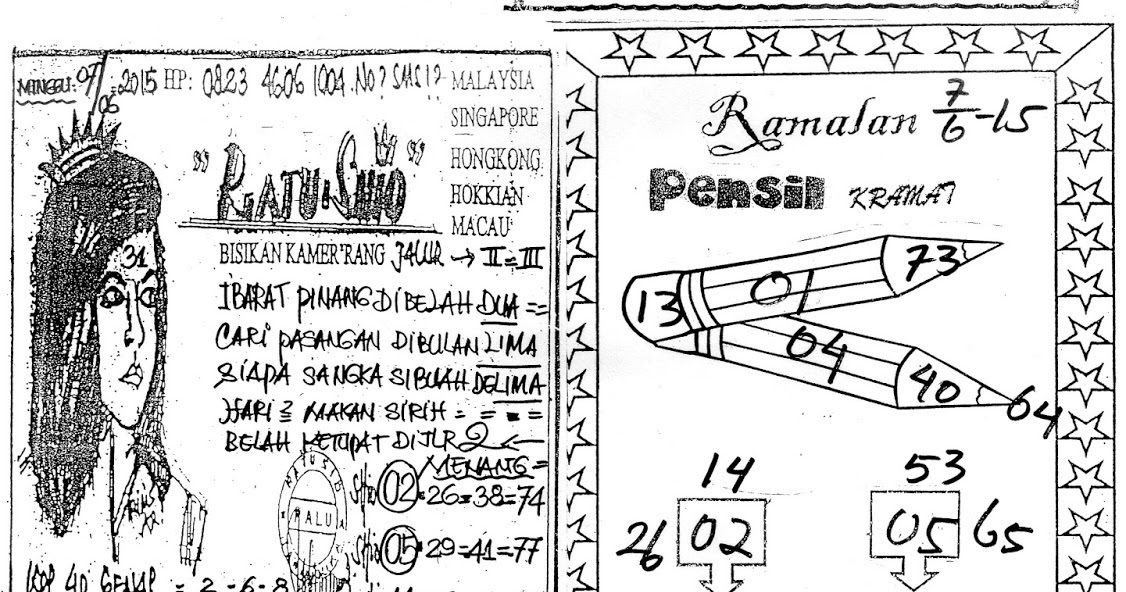 MINGGU: 07/06 2015 HP: 0823 4606 1004. NO? SMS!?
MALAYSIA
SINGAPORE
HONGKONG
HOKKIAN
MACAU
"RATU SHIO"
BISIKAN KAMER'RANG JALUR → II = III
IBARAT PINANG DIBELAH DUA = =
CARI PASANGAN DIBULAN LIMA
SIAPA SANGKA SIBUAH DELIMA
HARI 2 MAKAN SIRIH = = = =
BELAH KETUPAT DIJLR 2 ←
MENANG =
31
Shio 02 = 26 = 38 = 74
Shio 05 = 29 = 41 = 77
PALU
KOP 4D GENAP = 2 - 6 - 8
Ramalan 7/6-15
Pensil KRAMAT
13 01 73
04 40 64
14
26 02
53
05 65